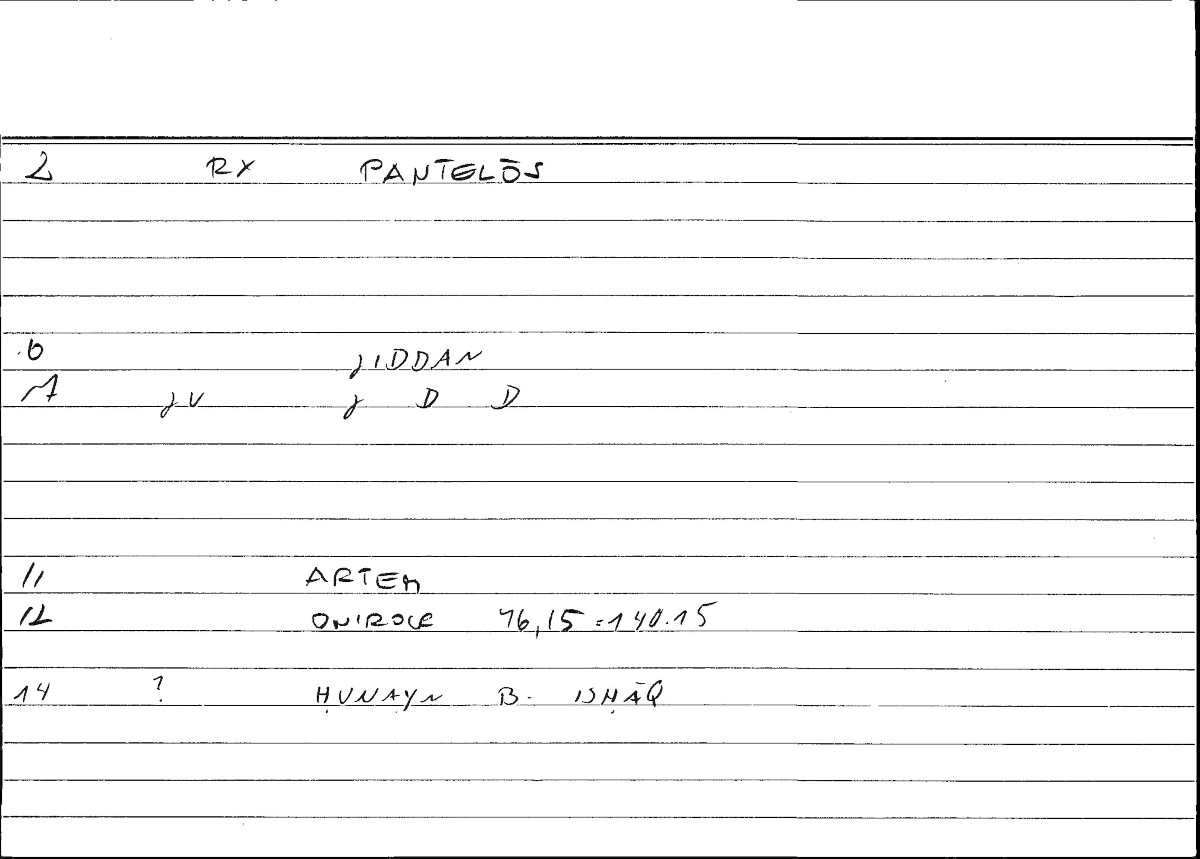 2 RX PANTELŌS
6 JIDDAN
7 JV J D D
11 ARTEM
12 ONIROCR 76,15 = 140.15
14 ? ḤUNAYN B. ISḤĀQ